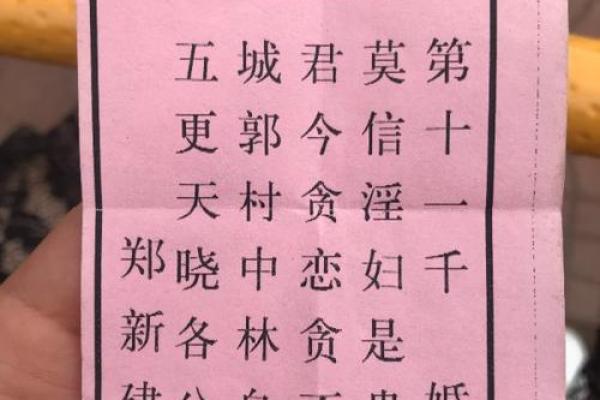 第十一千 婚
莫信淫妇是
君今贪恋贪
城郭村中林
五更天晓各分
郑新建